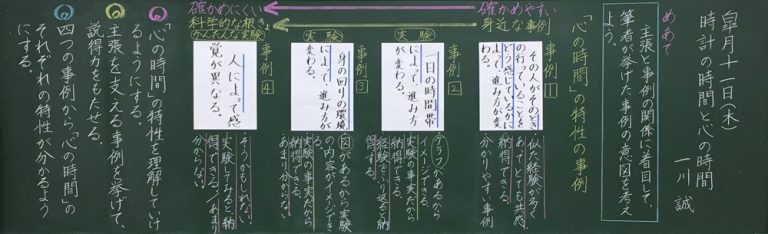 皐月十一日(木)
時計の時間と心の時間
一川 誠
めあて
主張と事例の関係に着目して、
筆者が挙げた事例の意図を考え
よう。
「心の時間」の特性の事例
確かめにくい
確かめやすい
科学的な根きょ
身近な事例
かんたんな実験
事例①
その人がそのとき
の行っていることを
どう感じているかに
よって、進み方が変
わる。
似た経験が多く
あって、とても共感、
納得できる。
分かりやすい事例
事例②
実験
一日の時間帯
によって、進み方
が変わる。
グラフがあるから
イメージできる。
実験の事実だから
納得できる。
経験をふり返ると納
得する。
事例③
実験
身の回りの環境
によって、進み方
が変わる。
図があるから実験
の内容がイメージでき
る。
実験の事実だから
納得できる。
あまり分からな
い。
事例④
人によって感
覚が異なる。
そうかもしれない
実験してみると納
得できる。/あまり
分からない。
「心の時間」の特性を理解していけ
るようにする。
主張を支える事例を挙げて、
説得力をもたせる。
四つの事例から「心の時間」の
それぞれの特性が分かるよう
にする。